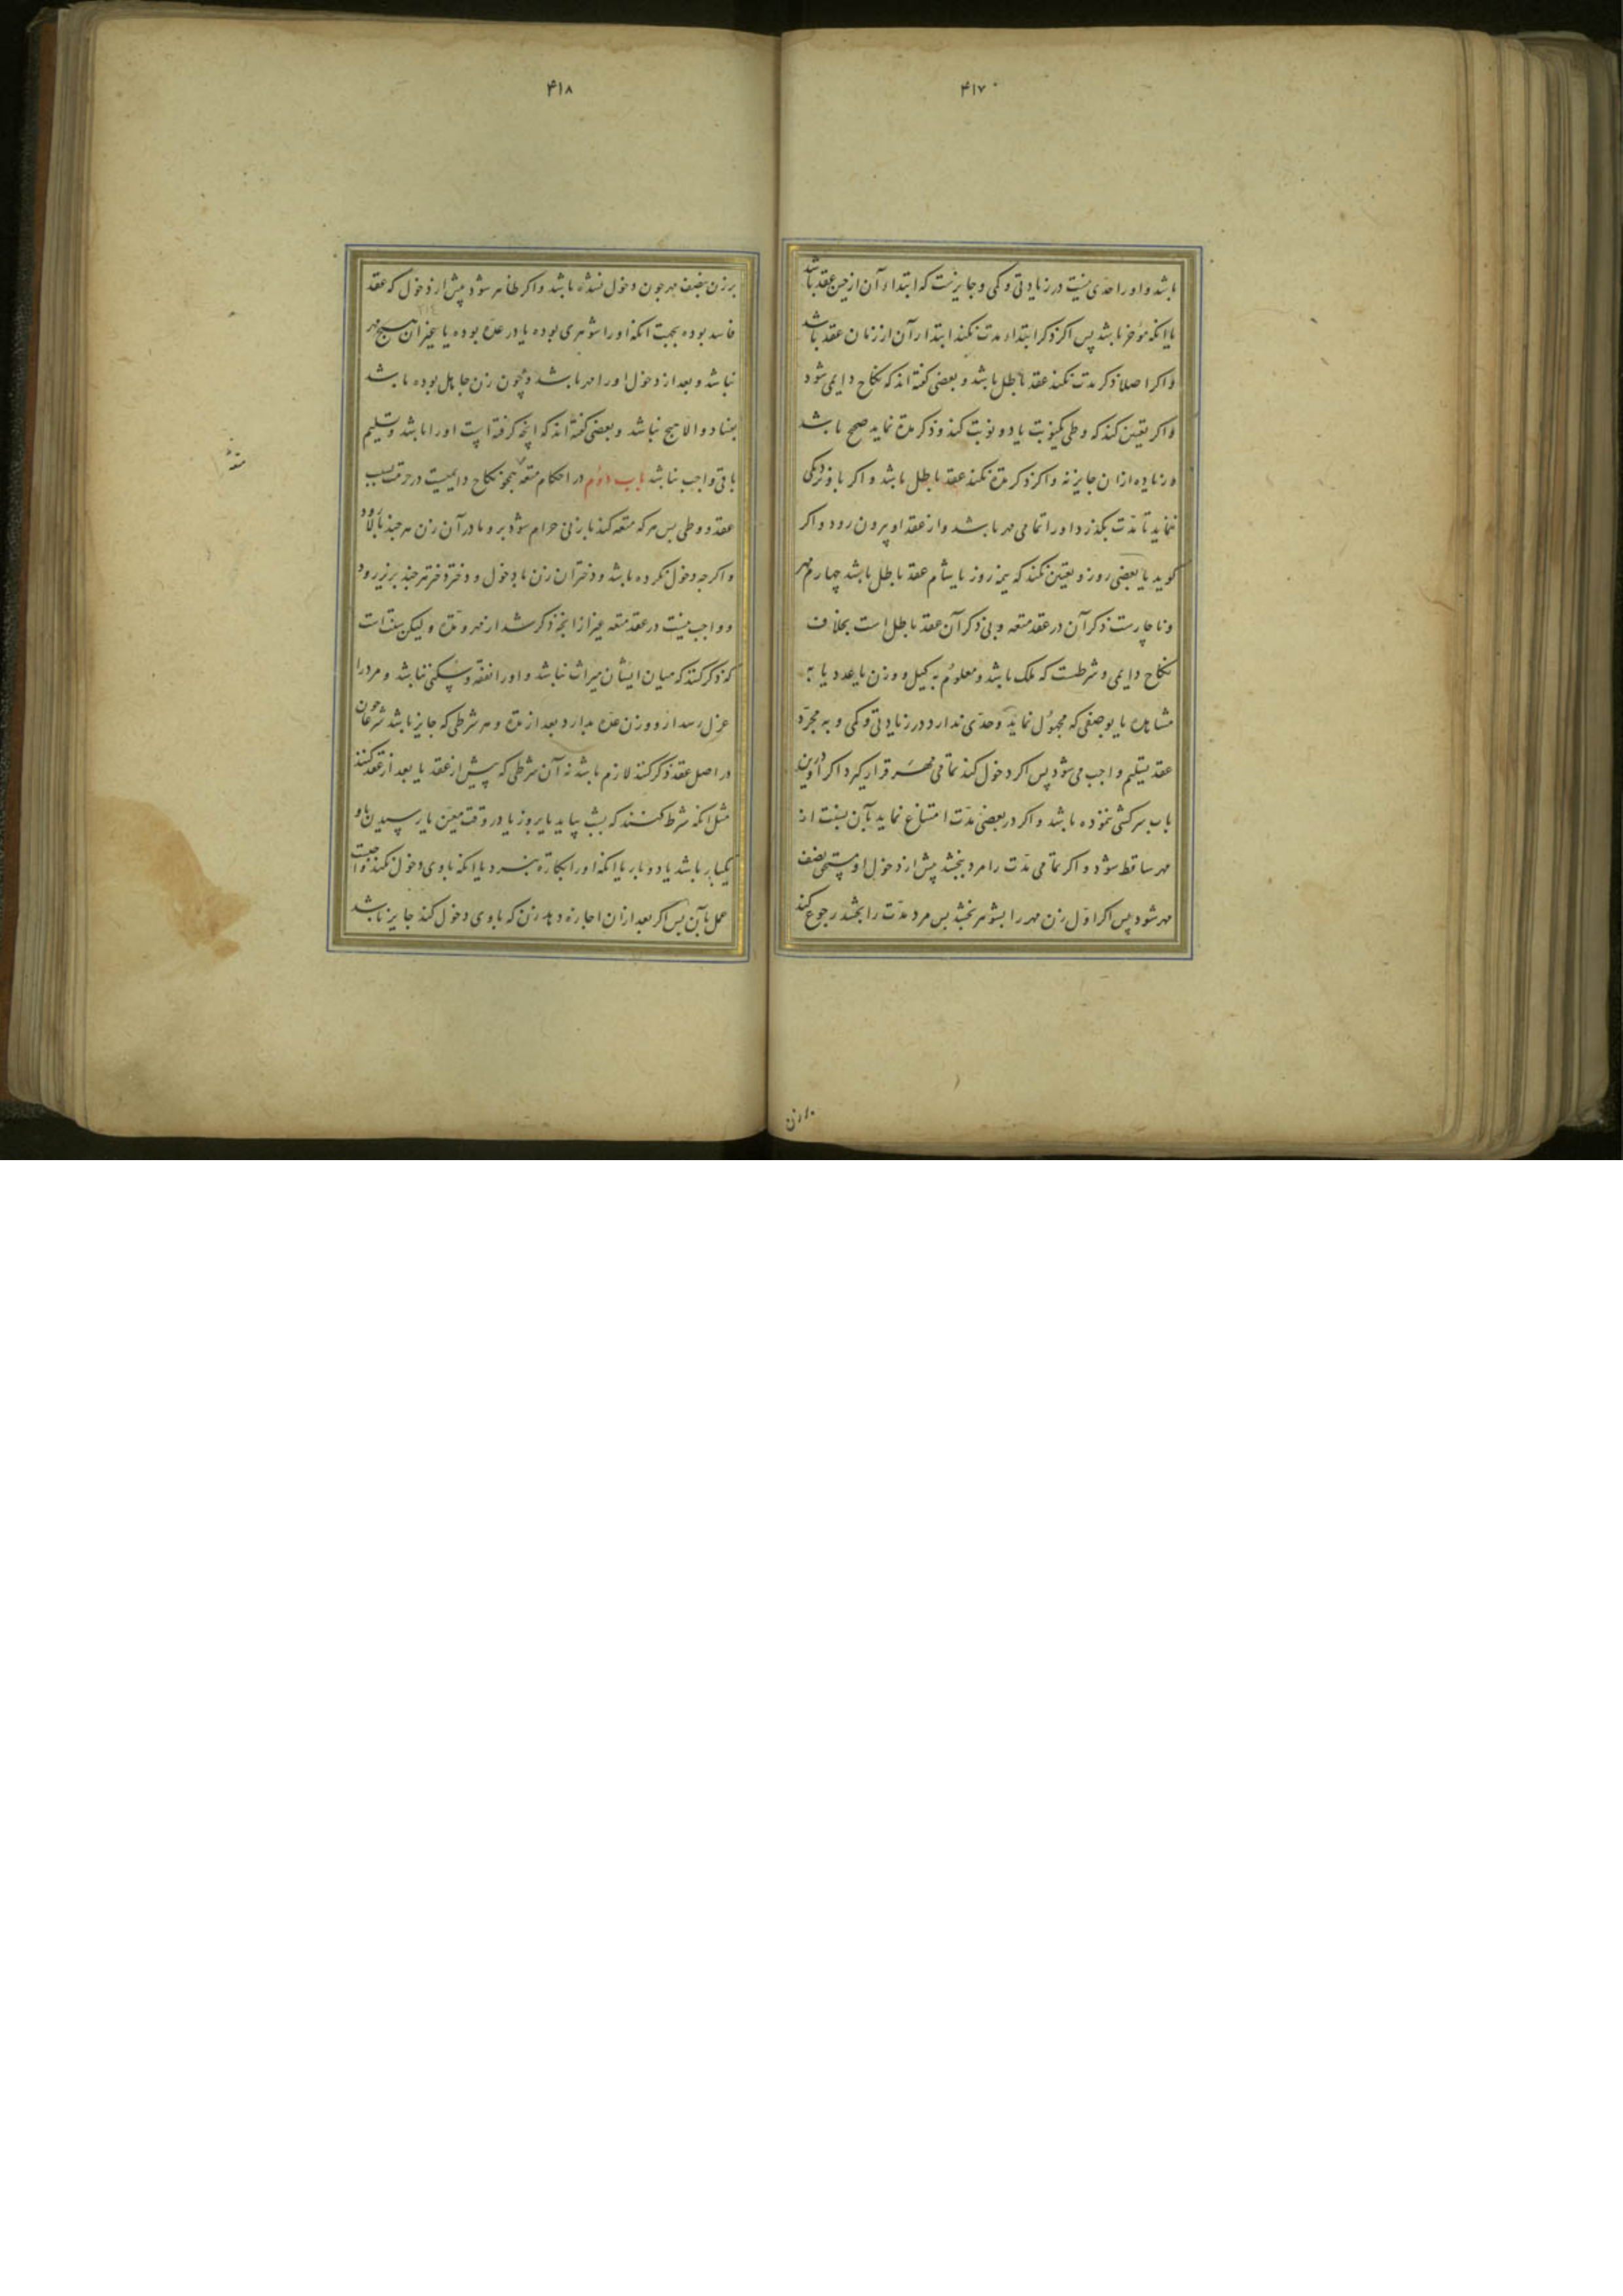 ۴۱۷
باشد و او را حدی نیست در زیادتی و کمی و جایزست که ابتداء آن از حین عقد باشد
یا انکه مؤخر باشد پس اکر ذکر ابتداء مدت نکند ابتداء آن از زمان عقد باشد
و اکر اصلا ذکر مدت نکند عقد باطل باشد و بعضی کفته اند که نکاح دایمی شود
و اکر تعیین کند که وطی یکنوبت یا دو نوبت کند و ذکر مدة نماید صحیح باشد
و زیاده ازان جایز نه و اکر ذکر مدة نکند عقد باطل باشد و اکر با او نزدیکی
ننماید تا مدت بکذرد او را تمامی مهر باشد و از عقد او بیرون رود و اکر
کوید یا بعضی روز و تعیین نکند که نیم روز یا شام عقد باطل باشد چهارم مهر
و ناچارست ذکر آن در عقد متعه و بی ذکر آن عقد باطل است بخلاف
نکاح دایمی و شرطست که ملک باشد و معلوم به کیل و وزن یا عدد یا به
مشاهده یا بوصفی که مجهول نماند و حدی ندارد در زیادتی و کمی و به مجرد
عقد تسلیم واجب می شود پس اکر دخول کند تمامی مهر قرار کیرد اکر
باب سرکشی ننموده باشد و اکر در بعضی مدت امتناع نماید بآن نسبت از
مهر ساقط شود و اکر تمامی مدت را مرد ببخشد پیش از دخول او مستحق نصف
مهر شود پس اکر اول زن مهر را بشوهر بخشد پس مرد مدت را بخشد رجوع کند
بر زن
۴۱۸
بر زن بنصف مهر چون دخول نشده باشد و اکر ظاهر شود پیش از دخول که عقد
فاسد بوده بجهت انکه او را شوهری بوده یا در عده بوده یا بغیر ان هیچ مهر
نباشد و بعد از دخول او را مهر باشد و چون زن جاهل بوده باشد
بفساد و الا هیچ نباشد و بعضی کفته اند که انچه کرفته است او را باشد و تسلیم
باقی واجب نباشد باب دوم در احکام متعه همچو نکاح دایمیست در حرمت بسبب
عقد و وطی پس هر که متعه کند با زنی حرام شود برو مادر آن زن هر چند بالا رود
و اکر چه دخول نکرده باشد و دختران زن با دخول و دختر دختر هر چند بزیر رود
و واجب نیست در عقد متعه غیر از انچه ذکر شد از مهر و مدة و لیکن سنت است
که ذکر کنند که میان ایشان میراث نباشد و او را نفقه و سکنی نباشد و مرد را
عزل رسد ازو و زن عده بدارد بعد از مدة و هر شرطی که جایز باشد شرعا چون
در اصل عقد ذکر کنند لازم باشد نه آن شرطی که پیش از عقد یا بعد از عقد کنند
مثل انکه شرط کنند که بشب بیاید یا بروز یا در وقت معین یا رسیدن باو
یکبار باشد یا دو بار یا انکه او را بکارة نبرد یا انکه با وی دخول نکند واجبست
عمل بآن پس اکر بعد ازان اجازه دهد زن که با وی دخول کند جایز باشد